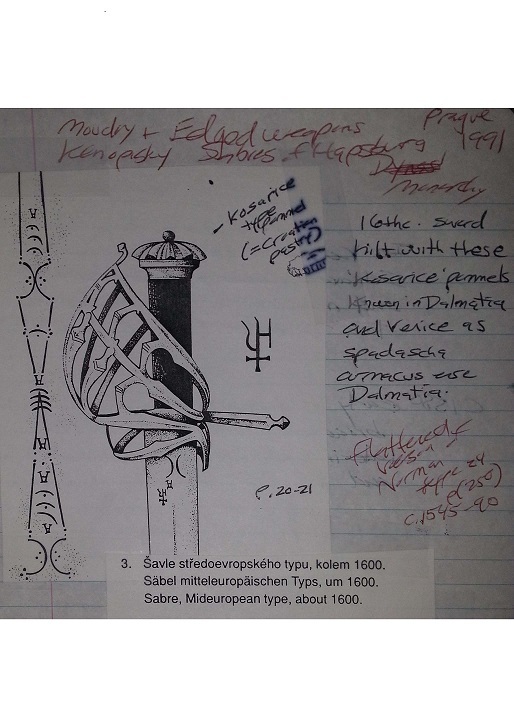 Moudry + Edged weapons Prague
Sabres of Hapsburg 1991
Monarchy
- Kosarice
type
(= Croat
16thc. sword
hilt with these
'Kosarice' pommels
Known in Dalmatia
and Venice as
spadascha
Dalmatia.
version
Norman
type 24
p(250)
c.1545-90
p.20-21
3. Šavle středoevropského typu, kolem 1600.
Säbel mitteleuropäischen Typs, um 1600.
Sabre, Mideuropean type, about 1600.